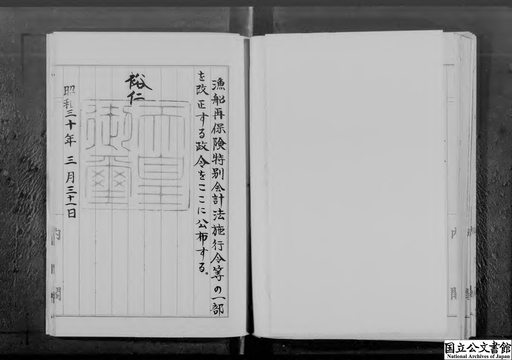 漁船再保険特別会計法施行令等の一部
を改正する政令をここに公布する。
裕仁
天皇
御璽
昭和三十年三月三十一日
内閣
国立公文書館
National Archives of Japan